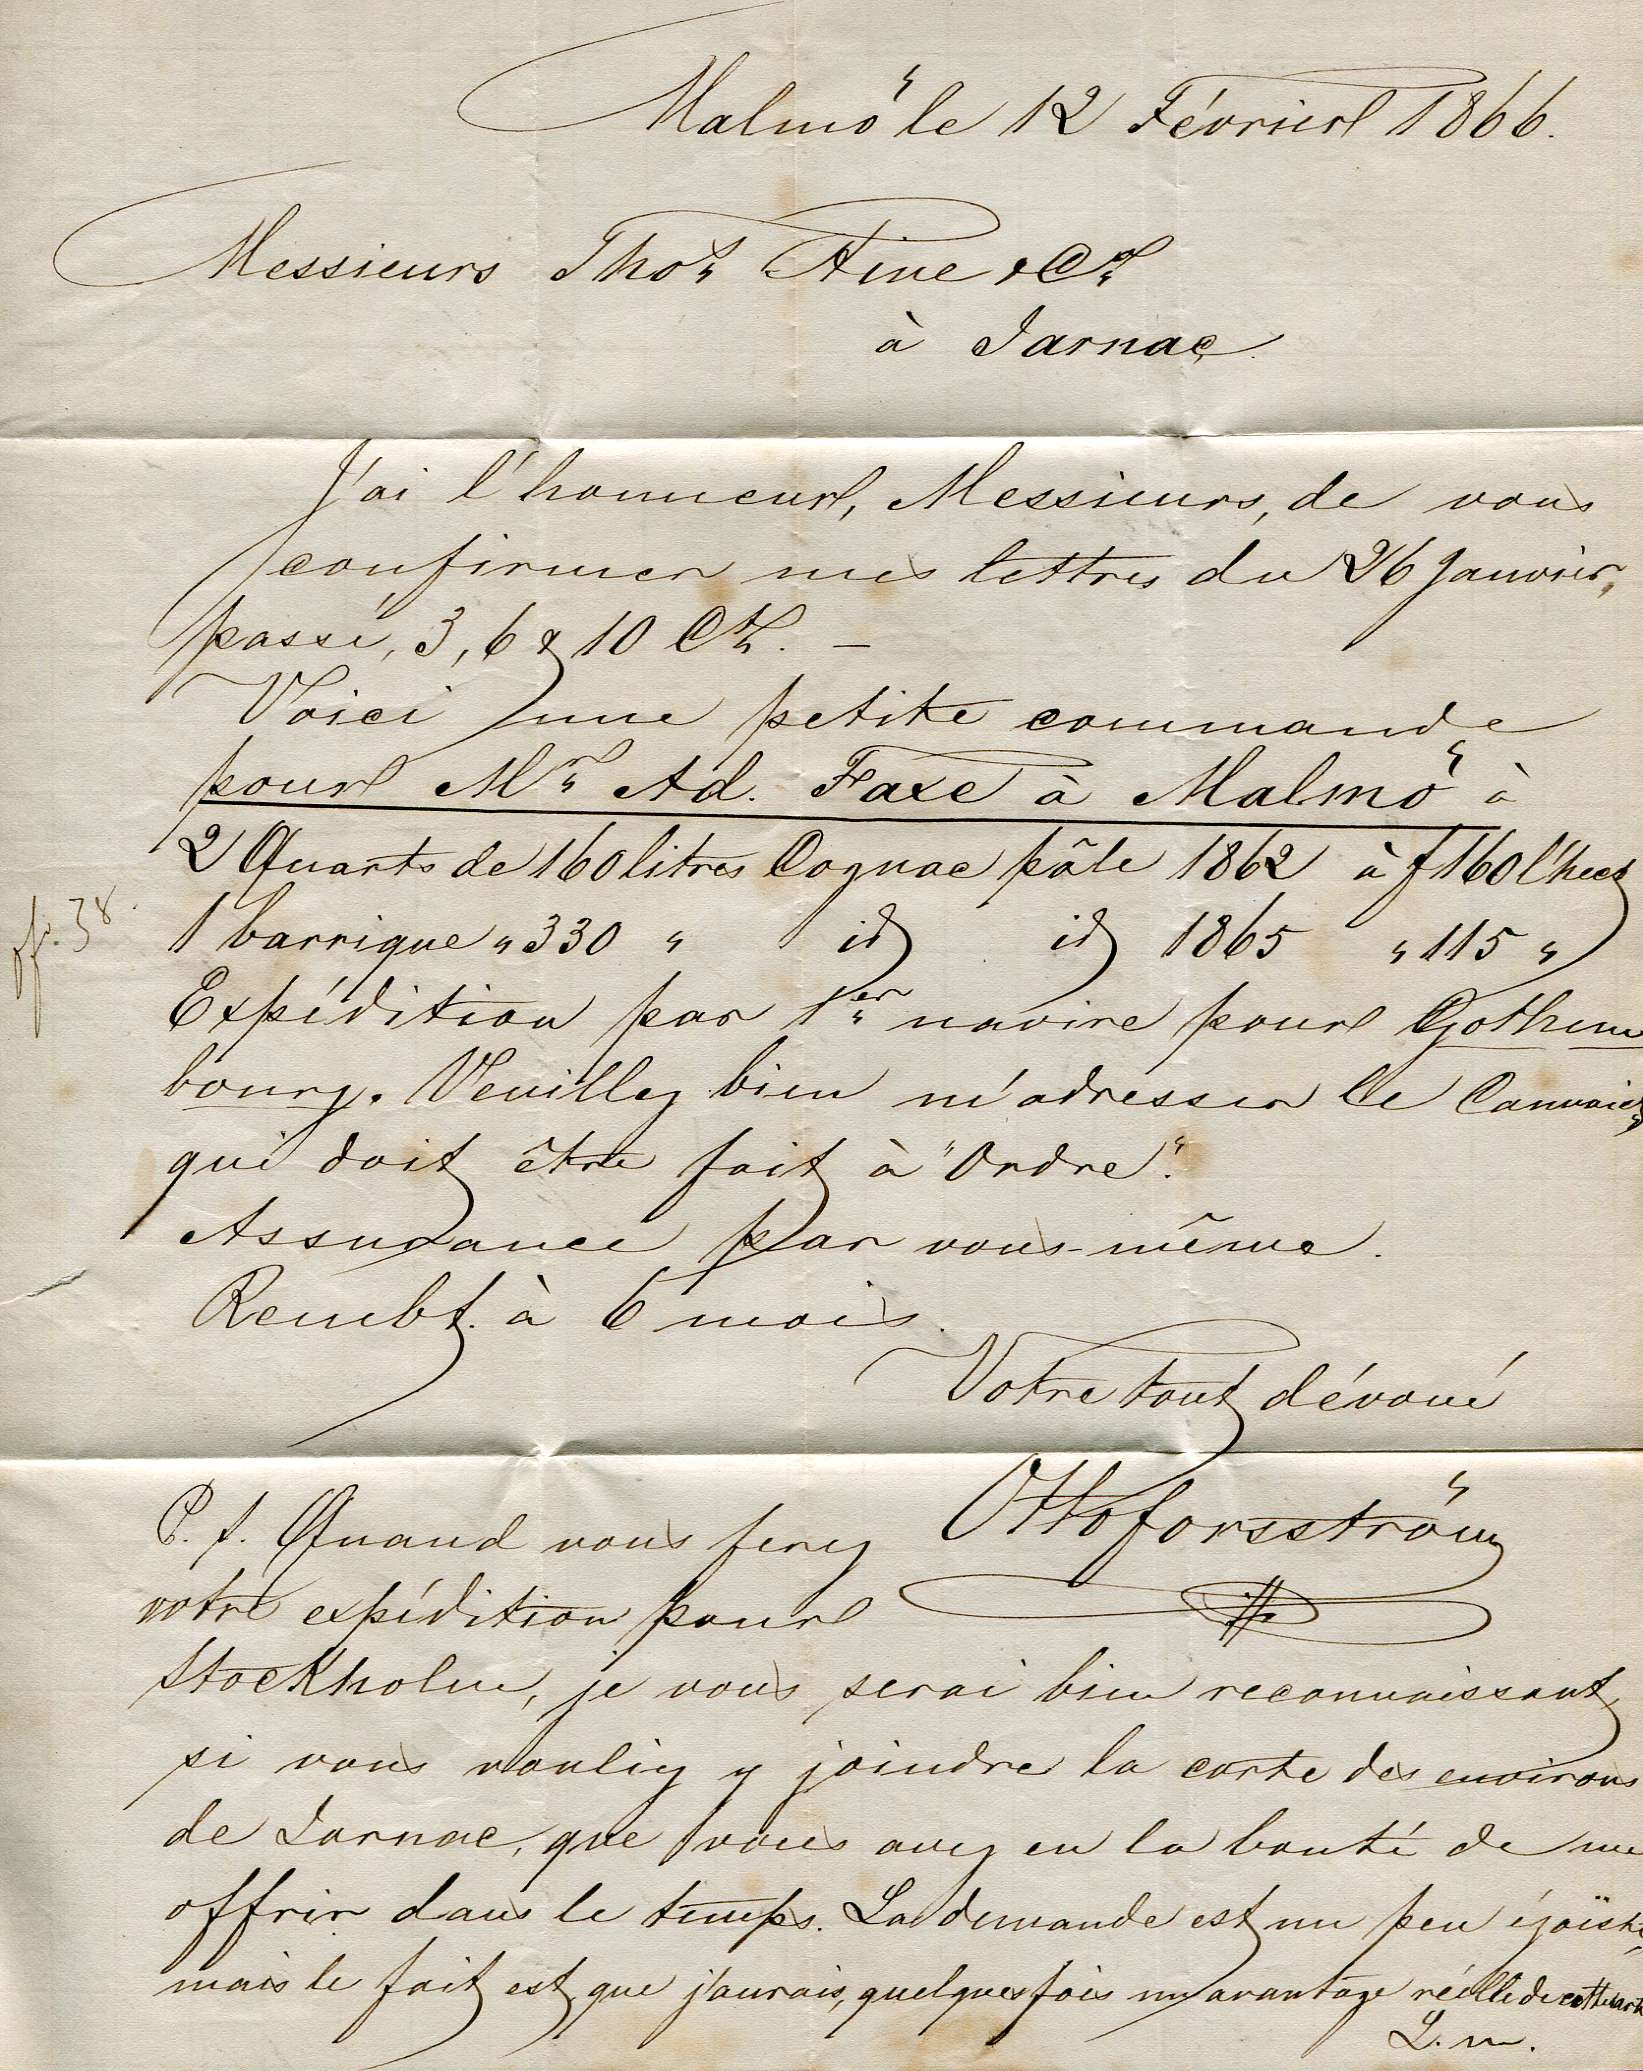 Malmö le 12 Février 1866.
Messieurs Thos Hine & Co
à Jarnac
J'ai l'honneur, Messieurs, de vous
confirmer mes lettres du 26 Janvier
passé, 3, 6 & 10 Ct. —
Voici une petite commande
pour Mr Ad. Faxe à Malmö à
2 Quarts de 160 litres Cognac pâle 1862 à f 160 l'hect
1 barrique " 330 " id id 1865 " 115 "
Expédition par 1er navire pour Gothem
bourg. Veuillez bien m'adresser le Connaist
qui doit être fait à "Ordre".
Assurance par vous-même.
Rembt. à 6 mois.
Votre tout dévoué
Otto Forsström
P. s. Quand vous ferez
votre expédition pour
Stockholm, je vous serai bien reconnaissant,
si vous vouliez y joindre la carte des environs
de Jarnac, que vous avez eu la bonté de me
offrir dans le temps. La demande est un peu égoïste,
mais le fait est que j'aurais, quelques fois un avantage réelle de cette carte
L. m.